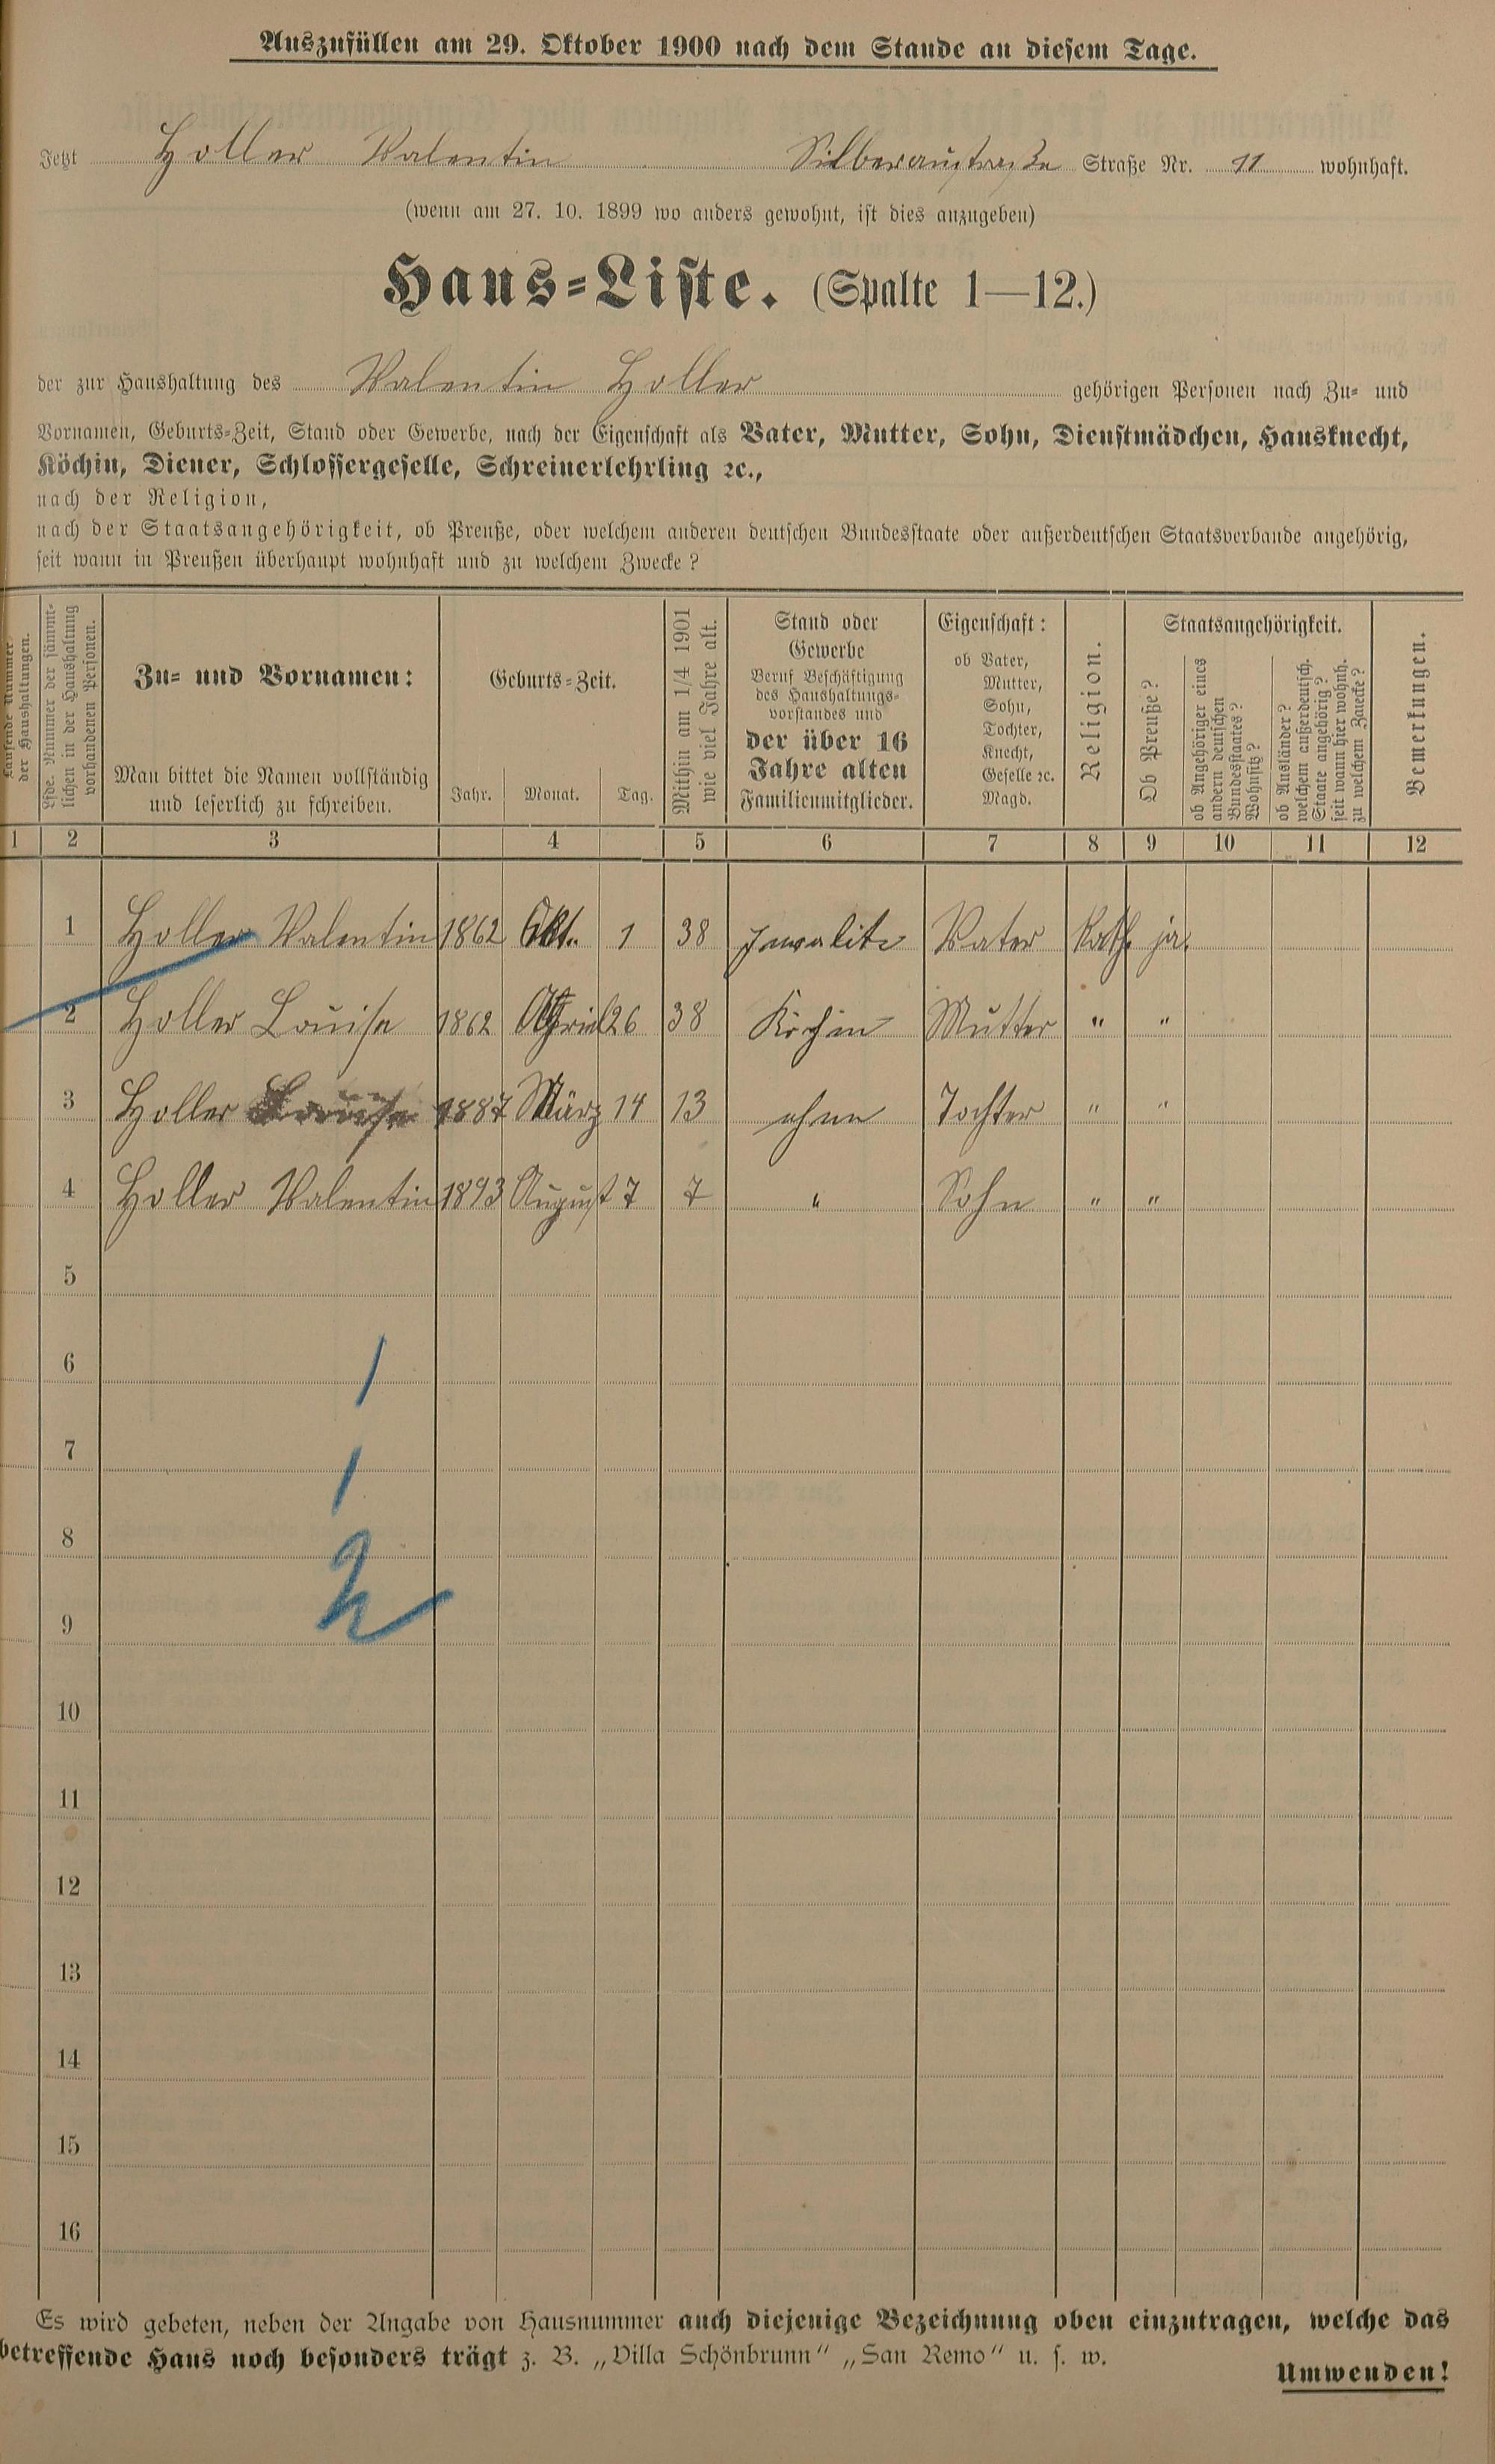 Auszufüllen am 29. Oktober 1900 nach dem Stande an diesem Tage.
Jetzt Holler Valentin Silberaustraße Straße Nr. 11 wohnhaft.
(wenn am 27. 10. 1899 wo anders gewohnt, ist dies anzugeben)
Haus=Liste. (Spalte 1—12.)
der zur Haushaltung des Valentin Holler gehörigen Personen nach Zu= und
Vornamen, Geburts=Zeit, Stand oder Gewerbe, nach der Eigenschaft als Vater, Mutter, Sohn, Dienstmädchen, Hausknecht,
Köchin, Diener, Schlossergeselle, Schreinerlehrling ꝛc.,
nach der Religion,
nach der Staatsangehörigkeit, ob Preuße, oder welchem anderen deutschen Bundesstaate oder außerdeutschen Staatsverbande angehörig,
seit wann in Preußen überhaupt wohnhaft und zu welchem Zwecke?
Laufende Nummer
der Haushaltungen.
Lfde. Nummer der sämmt=
lichen in der Haushaltung
vorhandenen Personen.
Zu= und Vornamen:
Man bittet die Namen vollständig
und leserlich zu schreiben.
Geburts=Zeit.
Jahr. Monat. Tag.
Mithin am 1/4 1901
wie viel Jahre alt.
Stand oder
Gewerbe
Beruf Beschäftigung
des Haushaltungs=
vorstandes und
der über 16
Jahre alten
Familienmitglieder.
Eigenschaft:
ob Vater,
Mutter,
Sohn,
Tochter,
Knecht,
Geselle ꝛc.
Magd.
Religion.
Staatsangehörigkeit.
Ob Preuße?
ob Angehöriger eines
andern deutschen
Bundesstaates?
Wohnsitz?
ob Ausländer?
welchem außerdeutsch.
Staate angehörig?
seit wann hier wohnh.
zu welchem Zwecke?
Bemerkungen.
1 2 3 4 5 6 7 8 9 10 11 12
1 Holler Valentin 1862 Okt. 1 38 Invalite Vater Kath. ja.
2 Holler Louise 1862 April 26 38 Köchin Mutter " "
3 Holler Louise 1887 März 14 13 ohne Tochter " "
4 Holler Valentin 1893 August 7 7 " Sohn " "
5
6
1
7
1
8
2
9
10
11
12
13
14
15
16
Es wird gebeten, neben der Angabe von Hausnummer auch diejenige Bezeichnung oben einzutragen, welche das
betreffende Haus noch besonders trägt z. B. „Villa Schönbrunn“ „San Remo“ u. s. w.
Umwenden!